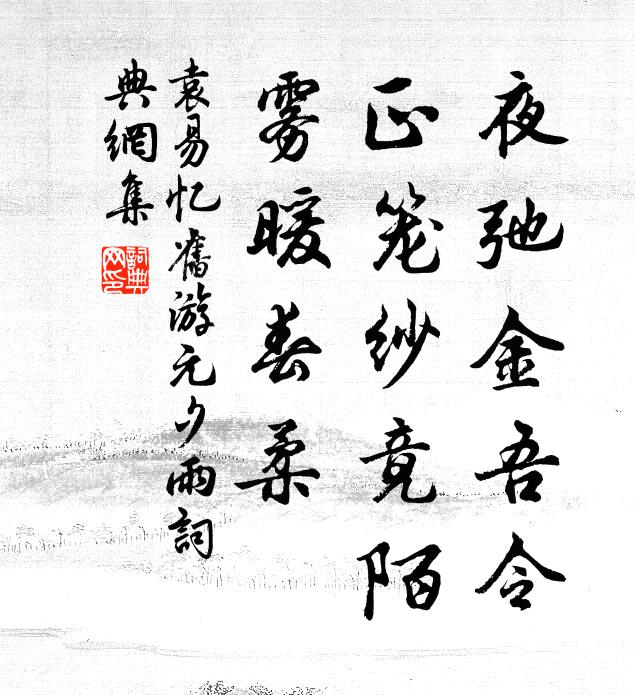 夜弛金吾令
正笼纱竟陌
雾暖春柔
袁易忆旧游元夕雨詞
典網集
詞典
网印